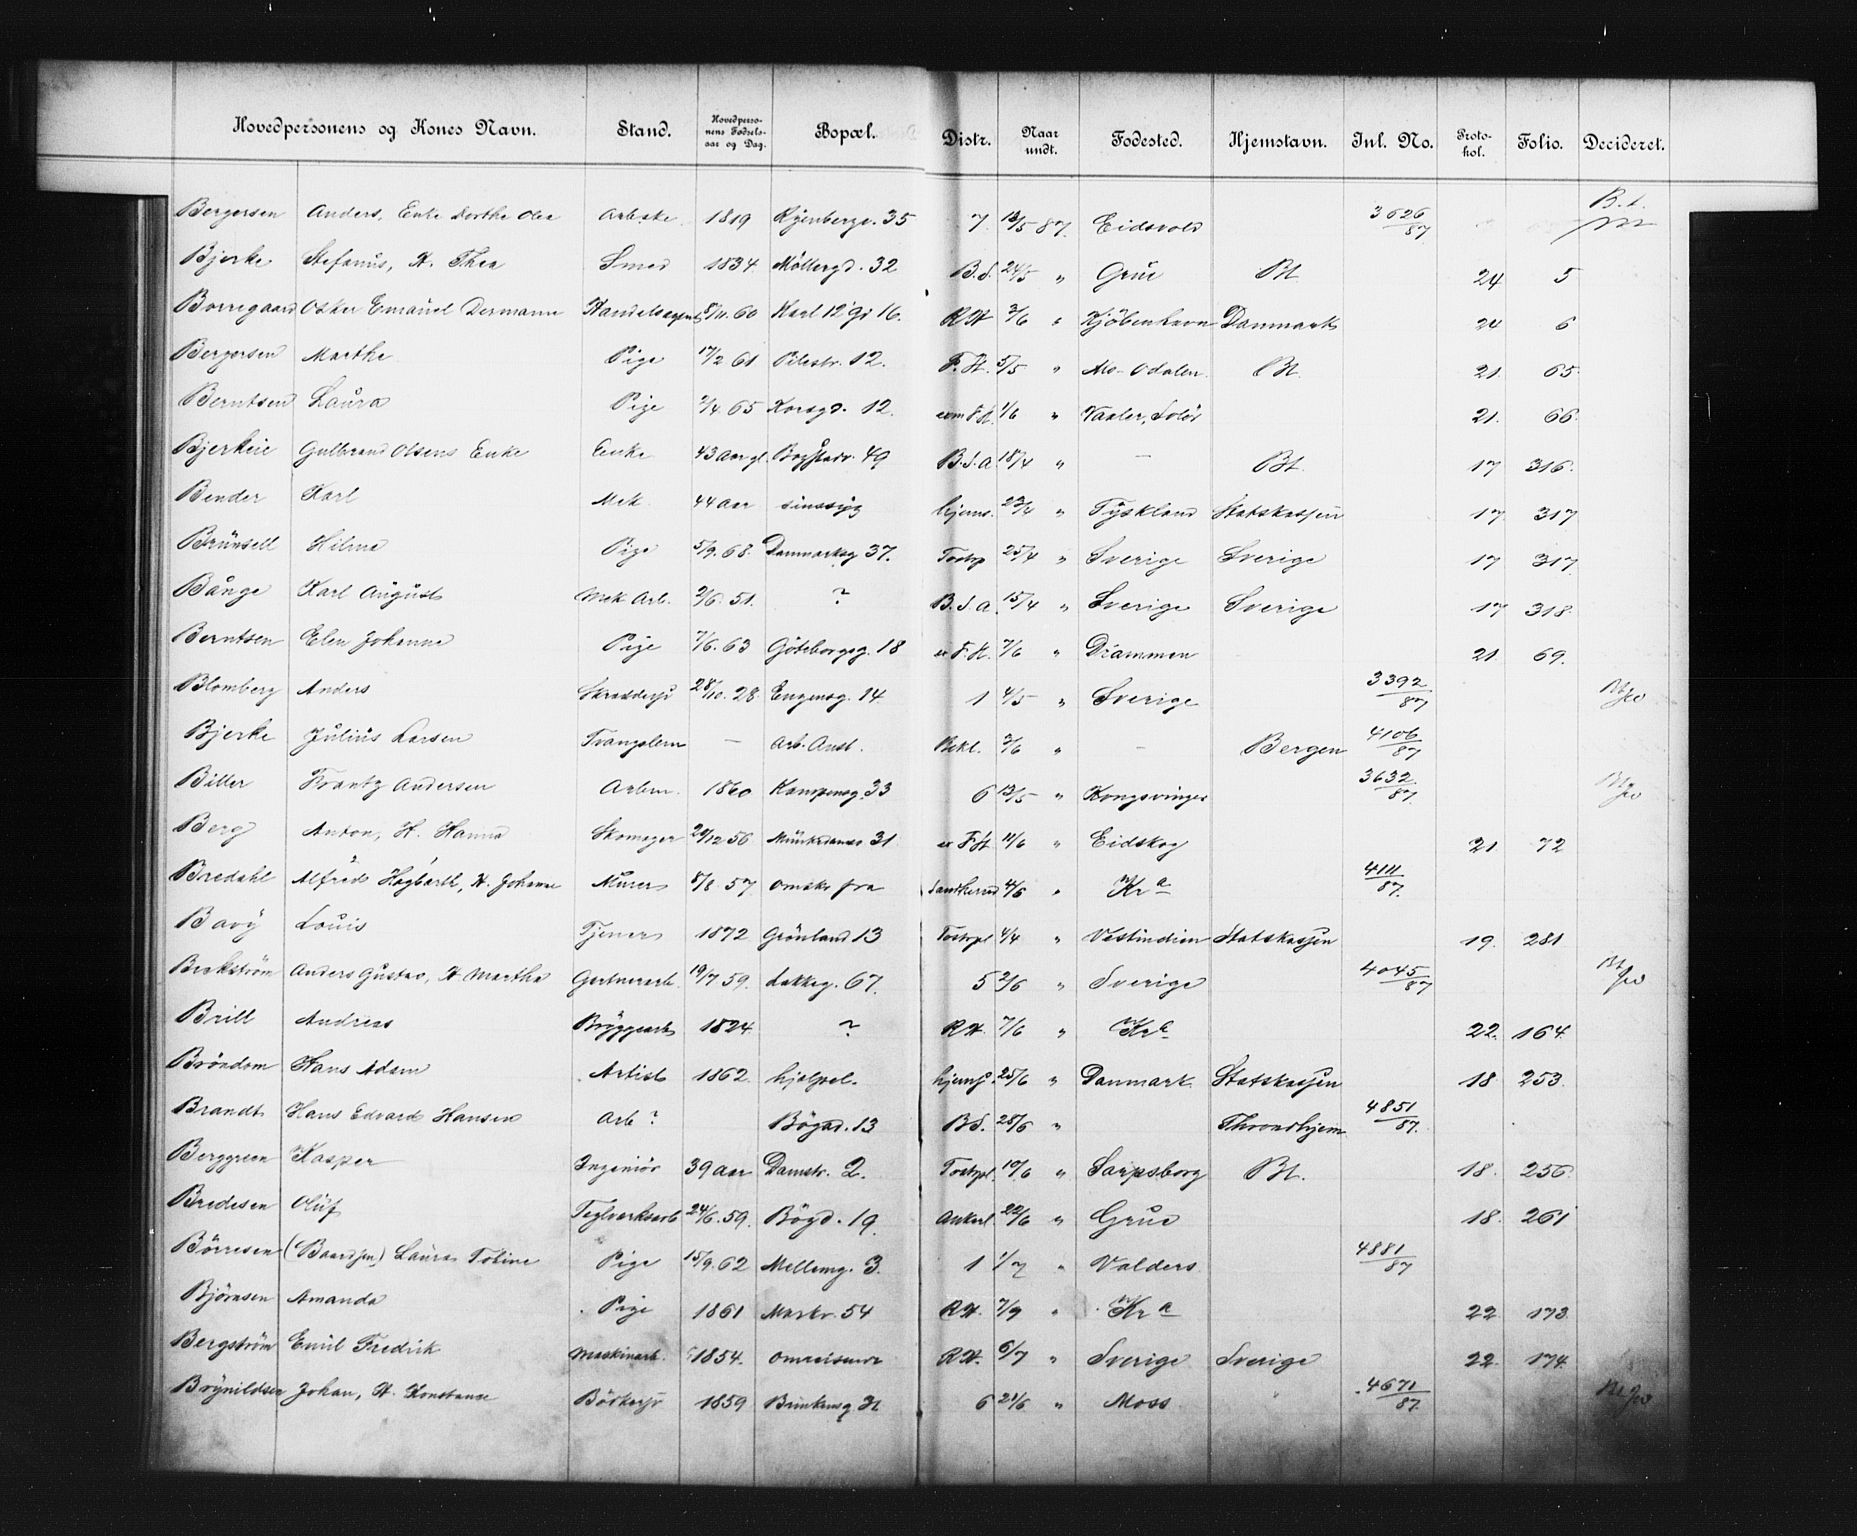 Hovedpersonens og Kones Navn. Stand. Hovedpersonens Fødselsaar og Dag. Bopæl. Distr. Naar undt. Fødested. Hjemstavn. Inl. No. Protokol. Folio. Decideret.
Bergersen Anders, Enke Dorthe Olea Arbske. 1819 35 7. 13/5 87. Eidsvold 3626/87 B.t.
Bjerke Stefanus, H. Thea Smed 1834 Møllergd. 32 B.S. 24/5 " Grue Bt 24 5
Borregaard Oskar Emanuel Handelsagent 60 Karl 12' Gd 16. R.H 3/6 " Kjøbenhavn Danmark 24 6
Bergersen Marthe Pige 17/2 61 Pilestr. 12. F.H. 5/5 " Odalen Bt. 21. 65
Berntsen Laura Pige 2/4. 65 Korsgd. 12. 1/6 " Vaaler, Solør 21. 66.
Bjerkeie Gulbrand Olsens Enke Enke 43 aar gl. Bogstadv. 49 B.S.a. 18/4 " — Bt. 17 316.
Bender Karl Mek. 44 aar sinssyg hjems. 23/4 " Tyskland Statskassen 17. 317
Brünsell Hilma Pige 5/9. 68. Danmarksg 37. 25/4 " Sverige Sverige 17 317.
Bånge Karl August Mek Arb. 2/6. 51. ? B.S.a. 15/4 " Sverige Sverige 17 318.
Berntsen Elen Johanne Pige 7/6. 63 Göteborgsg. 18 F.H. 7/6 " Drammen 21 69.
Blomberg Anders 28/10. 28. Enggensg. 14 1 4/5 " Sverige 3392/87
Bjerke Julius Larsen Tvangslem — Arb. Anst. Bekl. 3/6 " — Bergen 4106/87
Biller Frantz Andersen Arbm. 1860 Kampensg. 33 6 13/5 " Kongsvinger 3632/87.
Berg Anton, H. Hanna Skomager 24/12 56 31 F.H. 11/6 " Eidskog 21 72
Bredahl Alfred Hagbarth, H. Johanne Murer 8/8. 57 omstr fra 4/6 " Kra 4111/87.
Bavy Louis Tjener 1872 Grønland 13 4/4 " Vestindien Statskassen 19. 281
Beckström Anders Gustav, H Martha Gartnerarb. 19/7 59. Lakkeg. 67. 5 2/6 " Sverige 4045/87
Brill Andreas Bryggearb 1824 ? R.H. 7/6 " Kra 22. 164.
Bröndom Hans Adam Artist 1862. hjelpel. 25/6 " Danmark Statskassen 18. 253.
Brandt Hans Edvard Hansen Arb ? Bögd. 13 B.S. 28/6 " Throndhjem 4851/87.
Berggreen Kasper Ingeniör 39 aar Damstr. 2. 10/6 " Sarpsborg Bt. 18. 256.
Bredesen Oluf Teglverksarb 24/6. 59. Bögd. 19. Ankerl. 22/6 " Grue 18. 261
Börresen (Baardsen) Laura Toline Pige 15/9. 62 Mellemg. 3. 1 1/7 " Valders 4881/87
Björnsen Amanda Pige 1861 Markv. 54 R.H. 7/9 " Kra 22 173.
Bergström Emil Fredrik Maskinarb. 1854. omreisende R.H. 6/7 " Sverige Sverige 22. 174.
Brynildsen Johan, H. Konstanse 1859 6 21/6 " Moss " 4671/87.